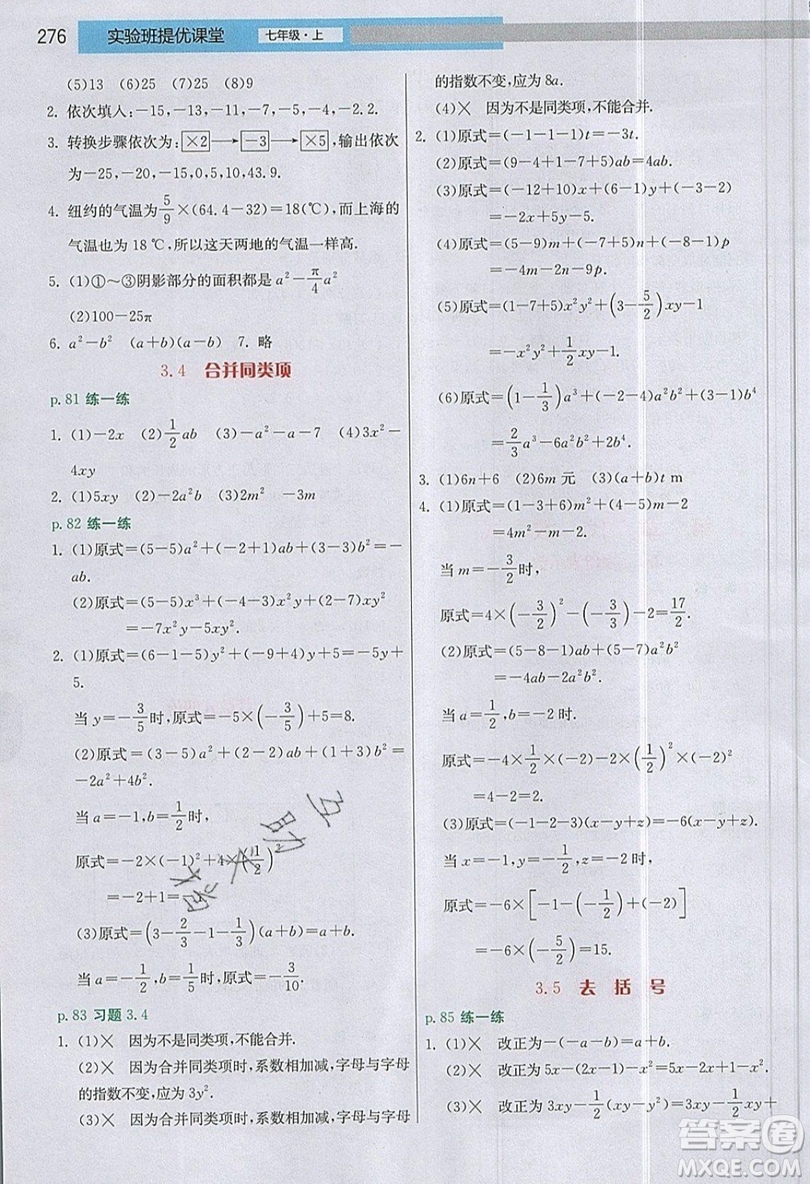 276 实验班提优课堂 七年级·上
(5)13 (6)25 (7)25 (8)9
2. 依次填入:-15,-13,-11,-5,-2,-2.2.
3. 转换步骤依次为:×2→-3→×5,输出依次
为-25,-20,-15,0,5,10,43.9.
4. 纽约的气温为5/9×(64.4-32)=18(℃),而上海的
气温也为18 ℃,所以这天两地的气温一样高.
5. (1)①~③阴影部分的面积都是a²-π/4a²
(2)100-25π
6. a²-b² (a+b)(a-b) 7. 略
3.4 合并同类项
p.81 练一练
1. (1)-2x (2)1/2ab (3)-a²-a-7 (4)3x²-
4xy
2. (1)5xy (2)-2a²b (3)2m² -3m
p.82 练一练
1. (1)原式=(5-5)a²+(-2+1)ab+(3-3)b²=-
ab.
(2)原式=(5-5)x³+(-3-4)x²y+(2-7)xy²
=-7x²y-5xy².
2. (1)原式=(6-1-5)y²+(-9+4)y+5=-5y+
5.
当y=-3/5时,原式=-5×(-3/5)+5=8.
(2)原式=(3-5)a²+(2-2)ab+(1+3)b²=
-2a²+4b².
当a=-1,b=1/2时,
原式=-2×(-1)²+4×(1/2)²
=-2+1=-1.
(3)原式=(3-2/3-1-1/3)(a+b)=a+b.
当a=-1/2,b=1/5时,原式=-3/10.
p.83 习题3.4
1. (1)× 因为不是同类项,不能合并.
(2)× 因为合并同类项时,系数相加减,字母与字母
的指数不变,应为3y².
(3)× 因为合并同类项时,系数相加减,字母与字母
的指数不变,应为8a.
(4)× 因为不是同类项,不能合并.
2. (1)原式=(-1-1-1)t=-3t.
(2)原式=(9-4+1-7+5)ab=4ab.
(3)原式=(-3+1)x+(6-1)y+(-3-4)
=-2x+5y-7.
(4)原式=(5-9)m+(-3+1)n+(-8-1)p
=-4m-2n-9p.
(5)原式=(7-8)x²y²+(3-5/2)xy-1
=-x²y²+1/2xy-1.
(6)原式=(1-1/3)a³+(-2+4)a²b²+(-1/2-1)b⁴
=2/3a³+2a²b²-3/2b⁴.
3. (1)6n+6 (2)6m元 (3)(a+b)t m
4. (1)原式=(1-3+6)m²+(4-5)m-2
=4m²-m-2.
当m=-3/2时,
原式=4×(-3/2)²-(-3/2)-2=17/2.
(2)原式=(5-8-1)ab+(5-5-2)a²b²
=-4ab-2a²b².
当a=1/2,b=-2时,
原式=-4×1/2×(-2)-2×(1/2)²×(-2)²
=4-2=2.
(3)原式=(-1-2-3)(x-y+z)=-6(x-y+z).
当x=-1,y=-1/2,z=-2时,
原式=-6×[-1-(-1/2)+(-2)]
=-6×(-5/2)=15.
3.5 去括号
p.85 练一练
1. (1)× 改正为-(-a-b)=a+b.
(2)× 改正为5x-(2x-1)-x²=5x-2x+1-x².
(3)× 改正为3xy-1/2(xy-y²)=3xy-1/2xy+
互助文档
答案圈
MXQE.COM